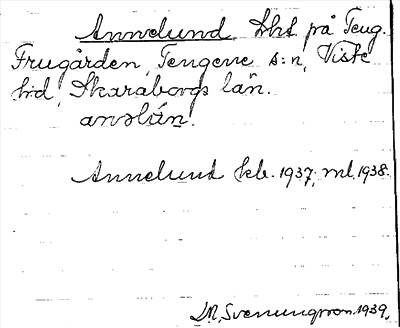 Annelund, Lht på Teng.
Frugården, Tengene s:n, Viste
hd, Skaraborgs län.
anəlún.
Annelund kb. 1937, ml. 1938.
D.A. Svenungsson. 1939.